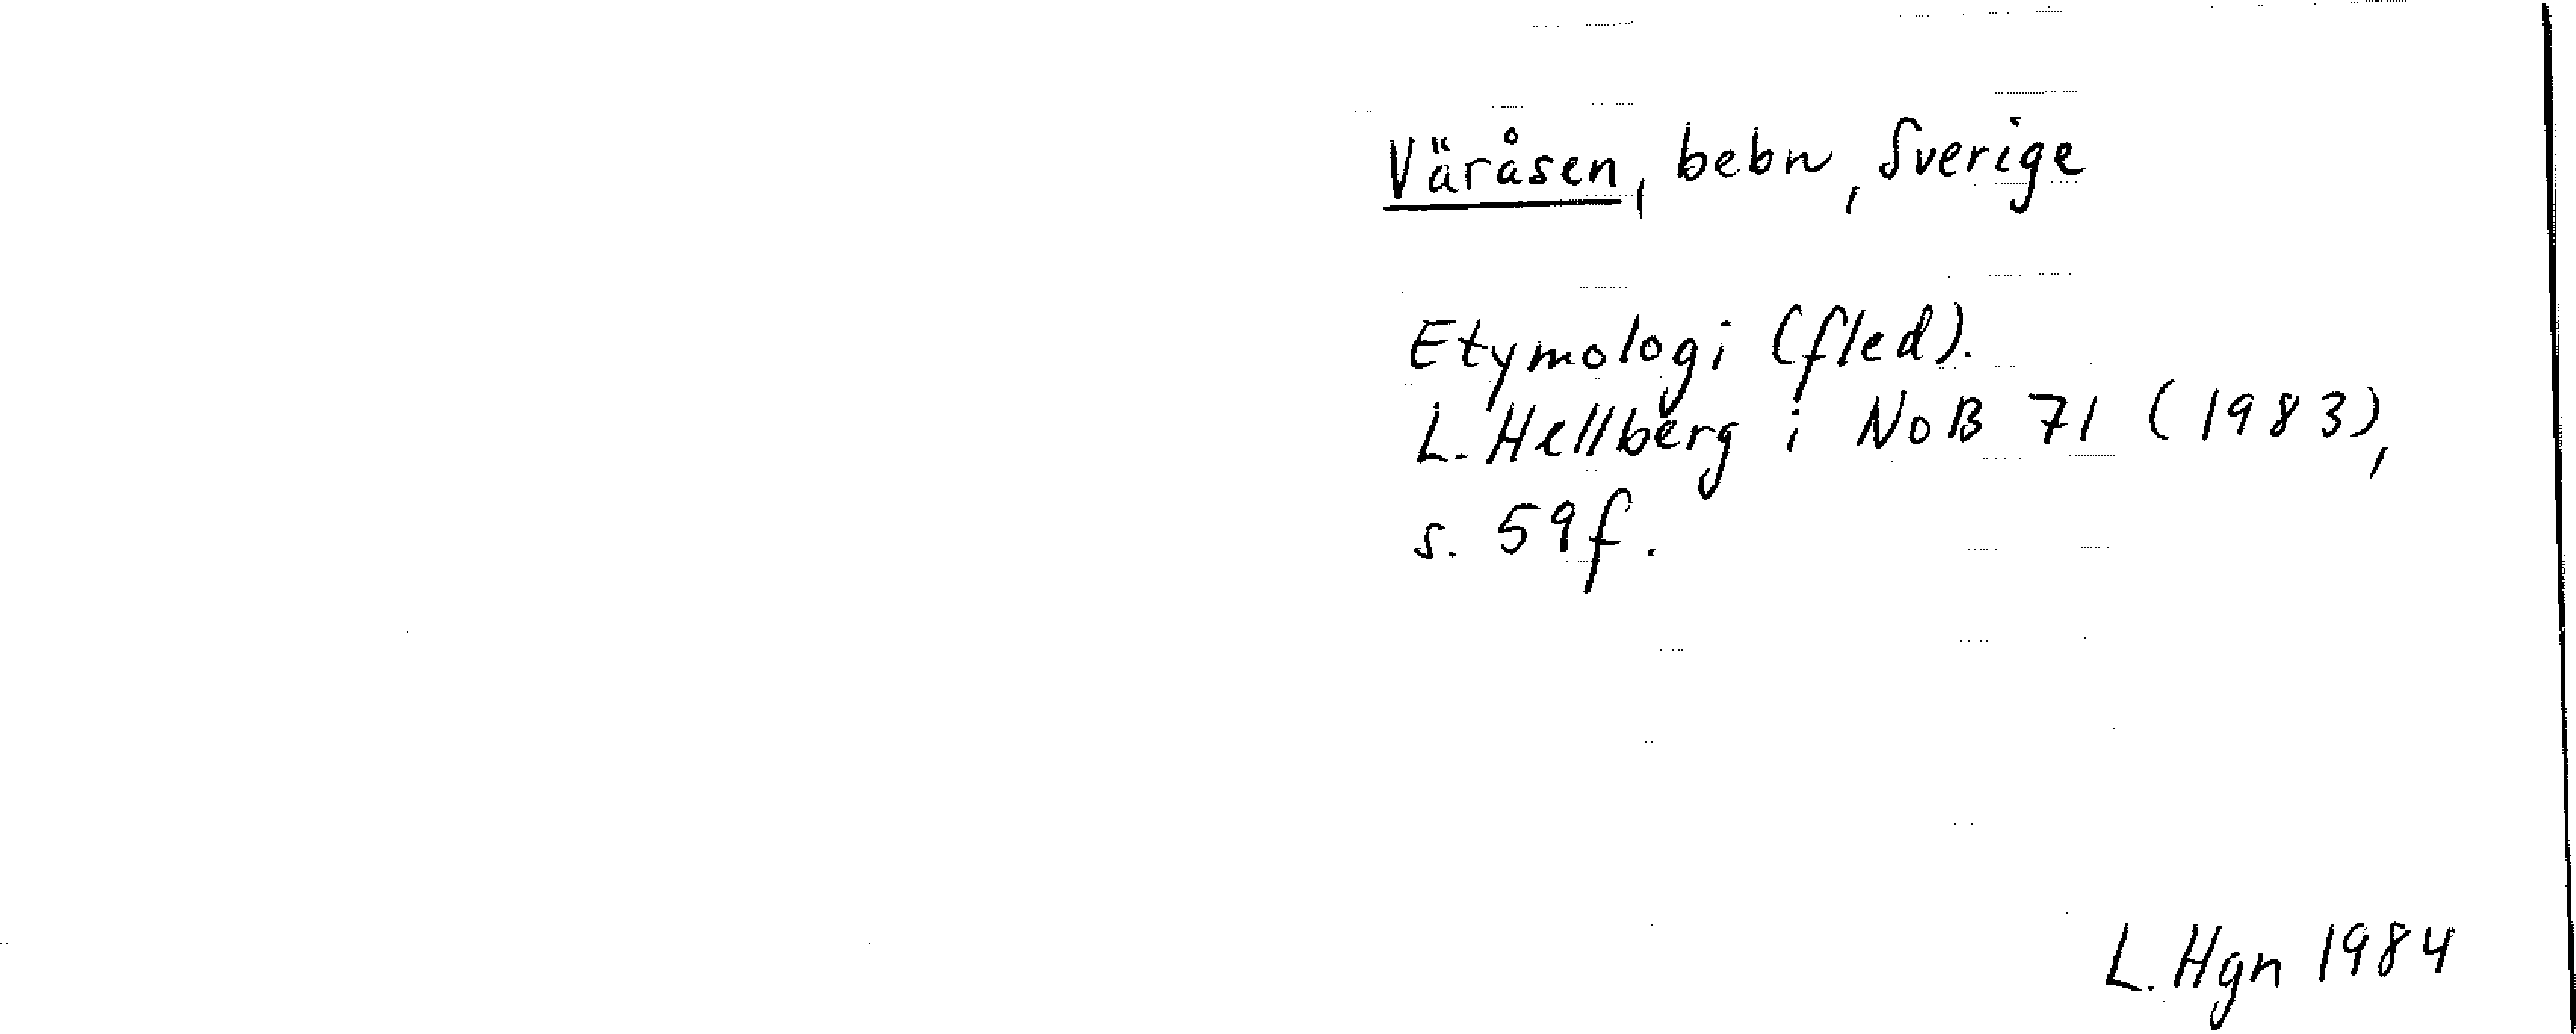 Väråsen, bebn, Sverige
Etymologi (fled).
L. Hellberg i NoB 71 (1983),
s. 59f.
L. Hgn 1984